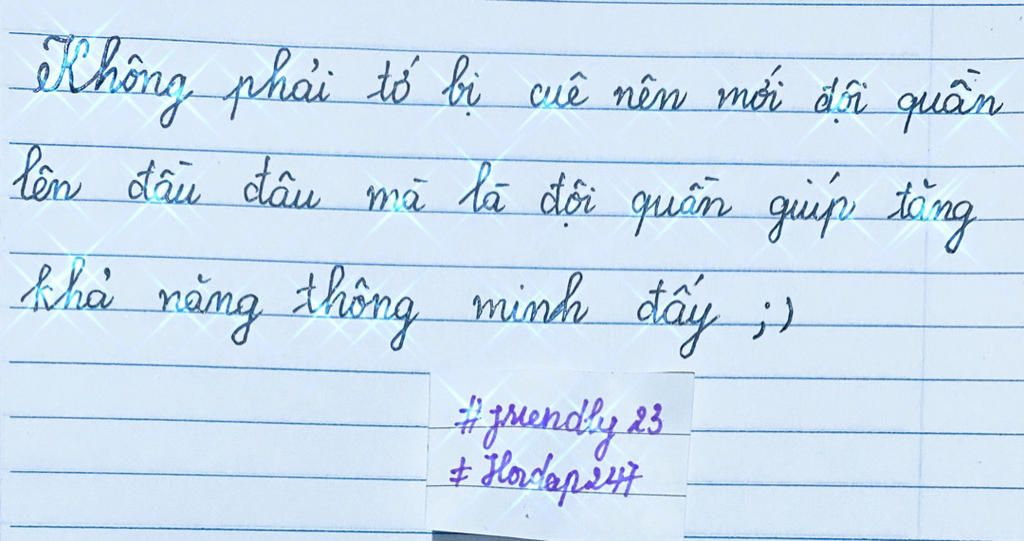 Không phải tớ bị cuê nên mới đội quần
lên đầu đâu mà là đội quần giúp tăng
khả năng thông minh đấy ;)
#friendly23
#Hoidap247